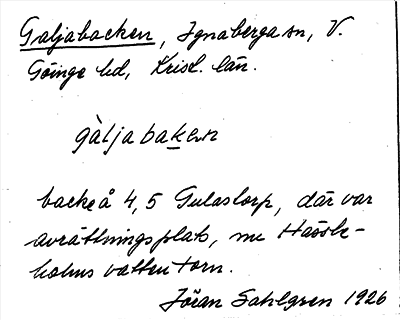 Galjabacken, Ignaberga sn, V.
Göinge hd, Krist. län.
gàljabakeɴ
backe å 4,5 Gulastorp, där var
avrättningsplats, nu Hässle-
holms vattentorn.
Jöran Sahlgren 1926